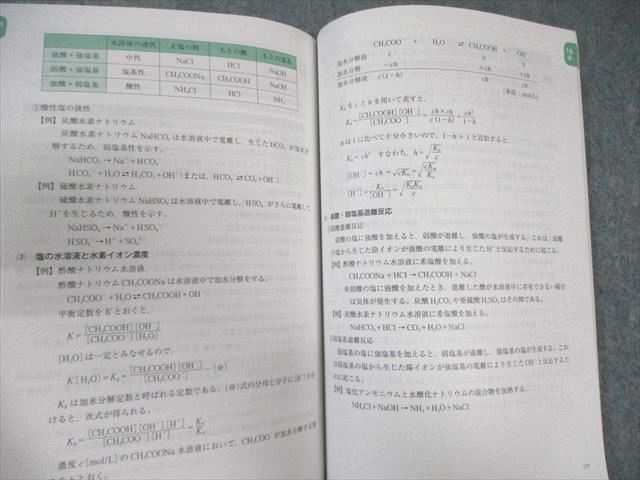 水溶液の液性 正塩の例 もとの酸 もとの塩基
強酸+強塩基 中性 NaCl HCl NaOH
弱酸+強塩基 塩基性 CH₃COONa CH₃COOH NaOH
強酸+弱塩基 酸性 NH₄Cl HCl NH₃
②酸性塩の液性
【例】炭酸水素ナトリウム
炭酸水素ナトリウム NaHCO₃ は水溶液中で電離し,生じた HCO₃⁻ が加水分
解するため,弱塩基性を示す。
NaHCO₃ → Na⁺ + HCO₃⁻
HCO₃⁻ + H₂O ⇄ H₂CO₃ + OH⁻ (または,HCO₃⁻ ⇄ CO₂ + OH⁻)
【例】硫酸水素ナトリウム
硫酸水素ナトリウム NaHSO₄ は水溶液中で電離し,HSO₄⁻ がさらに電離して
H⁺ を生じるため,酸性を示す。
NaHSO₄ → Na⁺ + HSO₄⁻
HSO₄⁻ → H⁺ + SO₄²⁻
(3) 塩の水溶液と水素イオン濃度
【例】酢酸ナトリウム水溶液
酢酸ナトリウム CH₃COONa は水溶液中で加水分解をする。
CH₃COO⁻ + H₂O ⇄ CH₃COOH + OH⁻
平衡定数を K とおくと,
K = [CH₃COOH][OH⁻] / [CH₃COO⁻][H₂O]
[H₂O] は一定とみなせるので,
K[H₂O] = Kₕ = [CH₃COOH][OH⁻] / [CH₃COO⁻] …(※)
Kₕ は加水分解定数と呼ばれる定数である。(※)式の分母と分子に [H⁺] をか
けると,次式が得られる。
Kₕ = [CH₃COOH][OH⁻][H⁺] / [CH₃COO⁻][H⁺] = Kw / Ka
濃度 c [mol/L] の CH₃COONa 水溶液において,CH₃COO⁻ が加水分解する
とおく。
14
章
CH₃COO⁻ + H₂O ⇄ CH₃COOH + OH⁻
加水分解前 c 0 0
加水分解 −ch +ch +ch
加水分解後 c(1−h) ch ch
(単位:mol/L)
Kₕ を c と h を用いて表すと,
Kₕ = [CH₃COOH][OH⁻] / [CH₃COO⁻] = ch×ch / c(1−h) = ch² / 1−h
h は 1 に比べて十分小さいので,1−h≒1 と近似すると,
Kₕ = ch² すなわち,h = √(Kₕ/c)
[OH⁻] = ch = √(cKₕ) = √(cKw/Ka)
[H⁺] = Kw/[OH⁻] = √(KaKw/c)
弱酸・弱塩基遊離反応
弱酸遊離反応
弱酸の塩に強酸を加えると,弱酸が遊離し,強酸の塩が生成する。これは,弱酸
の塩から生じた陰イオンが強酸の電離により生じた H⁺ と反応するために起こる。
【例】酢酸ナトリウム水溶液に希塩酸を加える。
CH₃COONa + HCl → CH₃COOH + NaCl
※弱酸の塩に強酸を加えたとき,遊離した酸が水溶液中に存在できない場合
は気体が発生する。炭酸 H₂CO₃ や亜硫酸 H₂SO₃ はその例である。
【例】炭酸水素ナトリウム水溶液に希塩酸を加える。
NaHCO₃ + HCl → CO₂ + H₂O + NaCl
弱塩基遊離反応
弱塩基の塩に強塩基を加えると,弱塩基が遊離し,強塩基の塩が生成する。これ
は弱塩基の塩から生じた陽イオンが強塩基の電離により生じた OH⁻ と反応するた
めに起こる。
【例】塩化アンモニウムと水酸化ナトリウムの混合物を加熱する。
NH₄Cl + NaOH → NH₃ + H₂O + NaCl